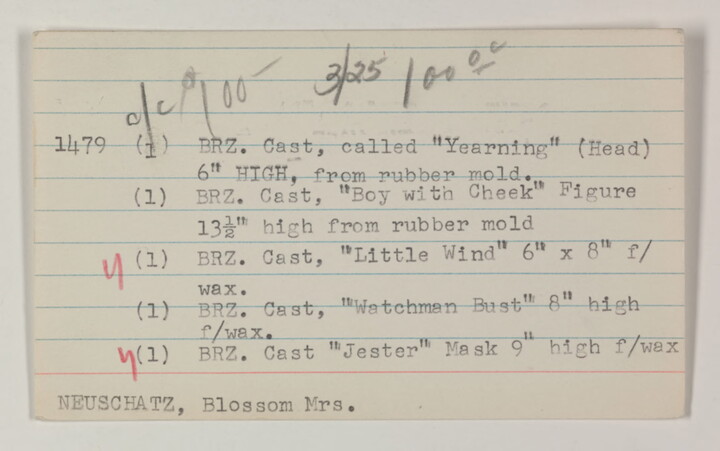 3/25 100 00
1479 (1) BRZ. Cast, called "Yearning" (Head)
6" HIGH, from rubber mold.
(1) BRZ. Cast, "Boy with Cheek" Figure
13½" high from rubber mold
(1) BRZ. Cast, "Little Wind" 6" x 8" f/
wax.
(1) BRZ. Cast, "Watchman Bust" 8" high
f/wax.
(1) BRZ. Cast "Jester" Mask 9" high f/wax
NEUSCHATZ, Blossom Mrs.